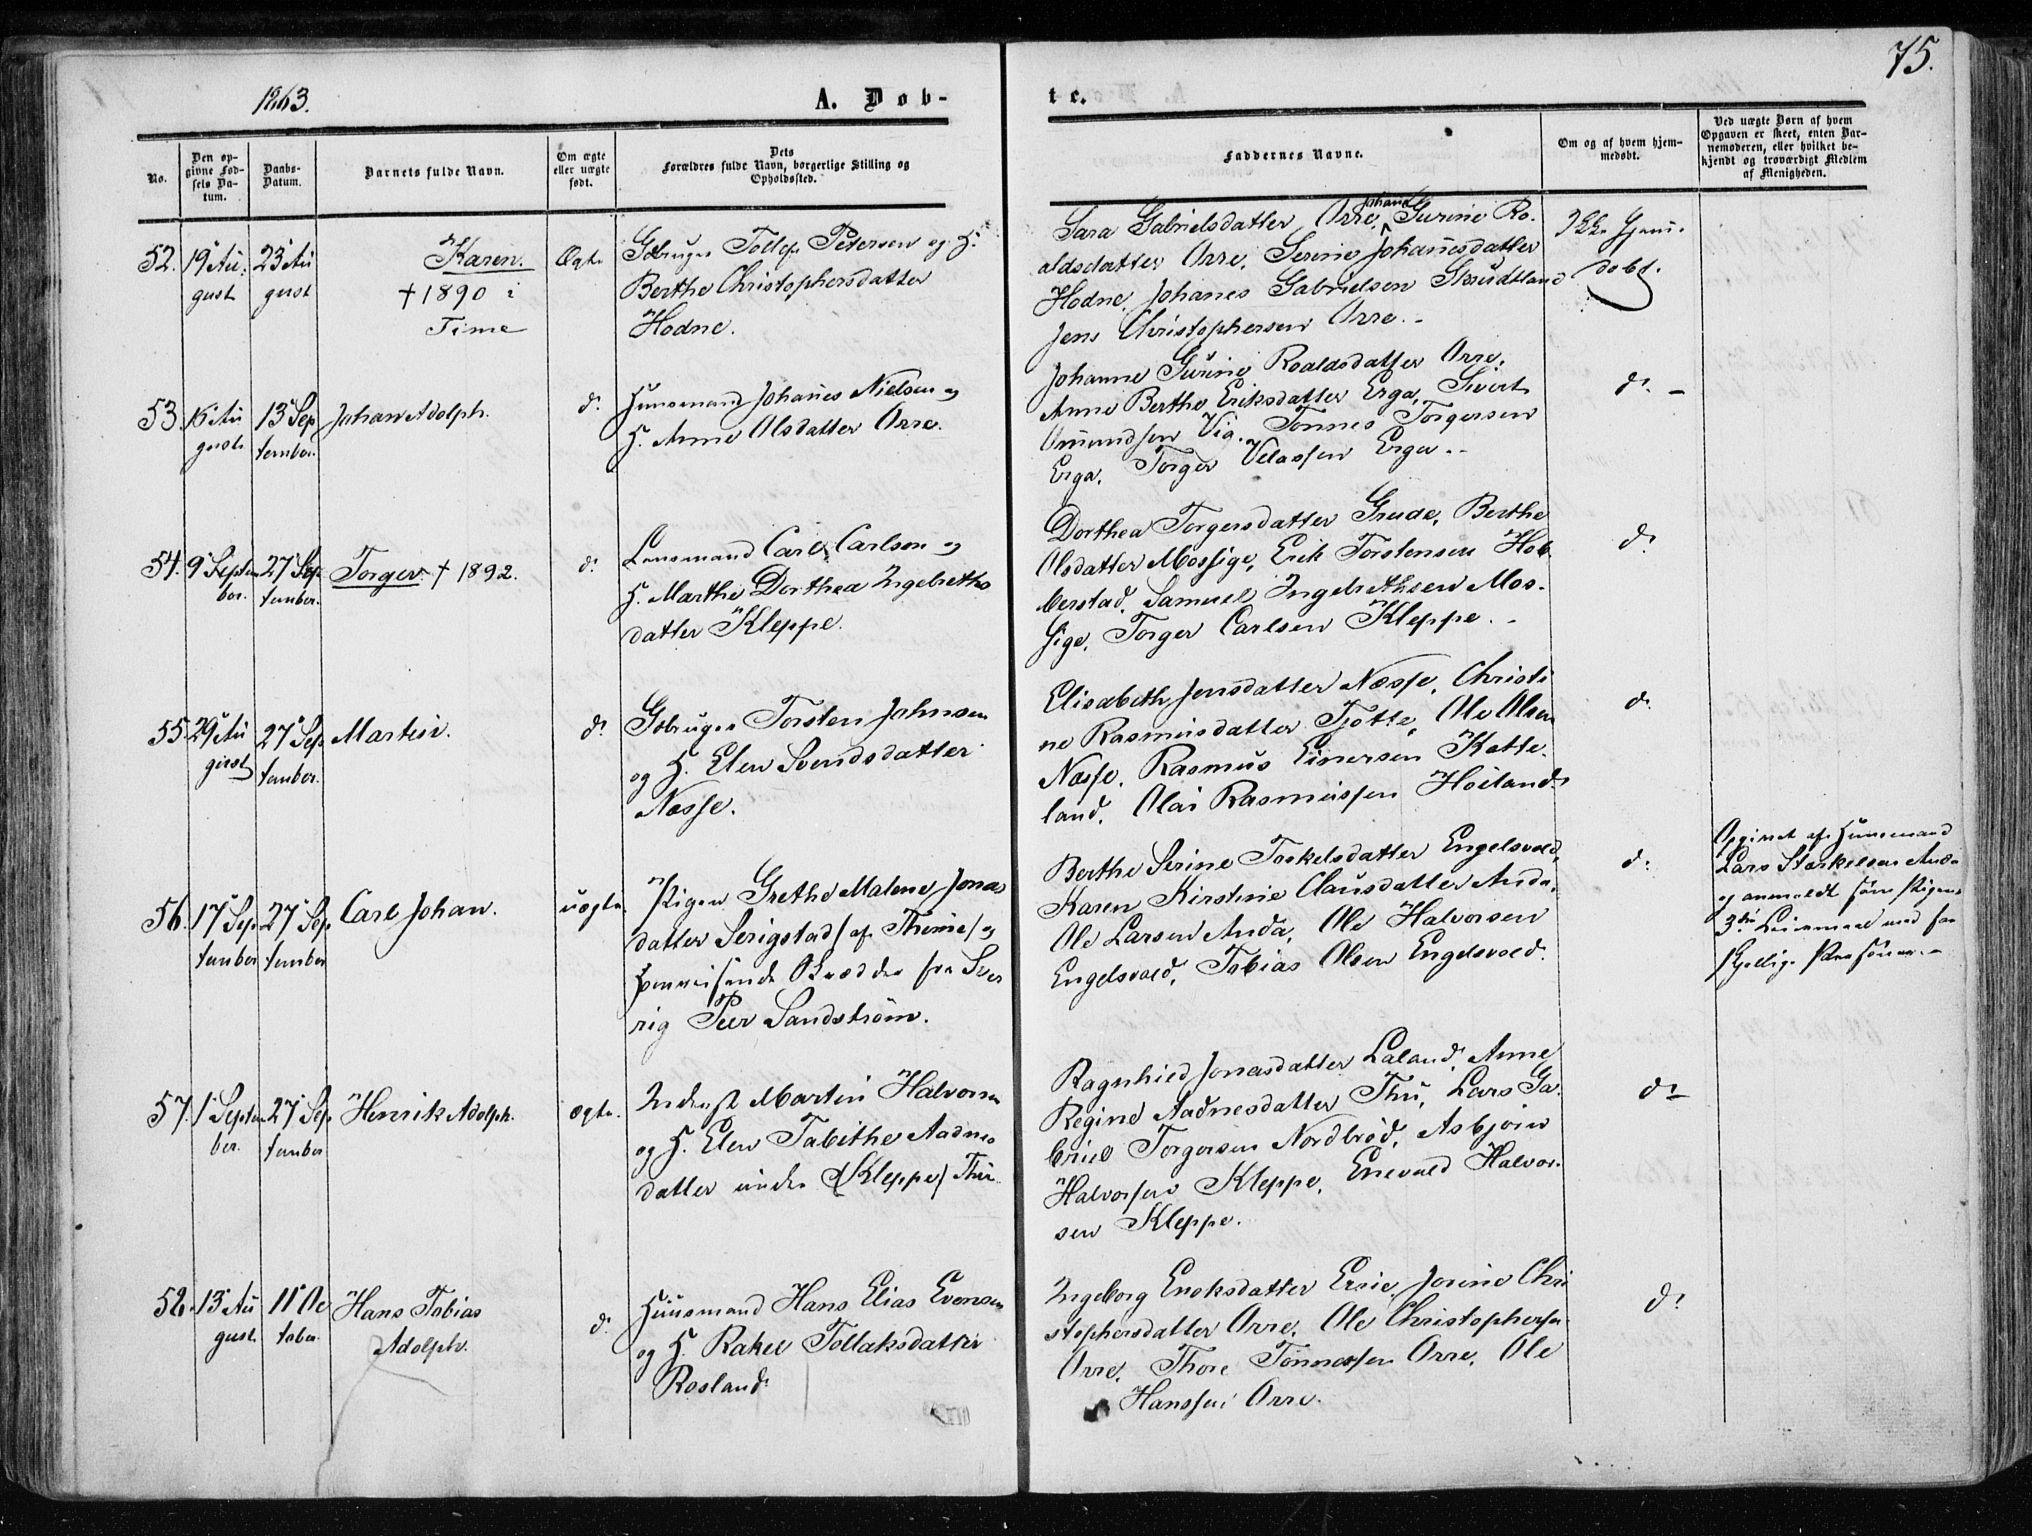 75.
1863.
A. Døb-
te.
No.
Den op-
givne Fød-
sels Da-
tum.
Daabs-
Datum.
Barnets fulde Navn.
Om ægte
eller uægte
født.
Dets
Forældres fulde Navn, borgerlige Stilling og
Opholdssted.
Faddernes Navne.
Om og af hvem hjem-
medøbt.
Ved uægte Børn af hvem
Opgaven er skeet, enten Bar-
nemoderen, eller hvilket be-
kjendt og troværdigt Medlem
af Menigheden.
52. 19 Au
gust
23 Au
gust
Karen.
† 1890 i
Time
Ægte
Gbruger Tollef Petersen og H.
Berthe Christophersdatter
Hodne.
Sara Gabrielsdatter Orre, Johane Gurine Ro-
aldsdatter Orre, Serine Johanesdatter
Hodne, Johanes Gabrielsen Skrudtland
Jens Christophersen Orre.
Ikke Hjem-
døbt.
53. 16 Au
gust
13 Sep
tember
Johan Adolph.
do
Huusmand Johanes Nielsen og
H. Anne Olsdatter Orre.
Johanne Gurine Roaldsdatter Orre,
Anne Berthe Eriksdatter Erga, Sivert
Omundsen Vig, Tønnes Torgersen
Erga, Torger Velassen Erga.
do
54. 9 Septem
ber.
27 Sep
tember.
Torger. † 1892.
do
Lensmand Carl Carlsen og
H. Marthe Dorthea Ingebreths
datter Kleppe.
Dorthea Torgersdatter Grude, Berthe
Olsdatter Mossige, Erik Torstensen Hob-
berstad, Samuel Ingebrethsen Mos-
sige, Torger Carlsen Kleppe.
do
55. 29 Au
gust
27 Sep
tember.
Martin.
do
Gbruger Torsten Johnsen
og H. Elen Svendsdatter
Næsse.
Elisabeth Jensdatter Næsse, Christi
ne Rasmusdatter Tjøtte, Ole Olsen
Næsse, Rasmus Einersen Katte-
land, Olai Rasmussen Høiland.
do
56. 17 Sep
tember
27 Sep
tember
Carl Johan.
uægte.
Pigen Grethe Malene Jonas
datter Serigstad / af Thime / og
omreisende Skrædder fra Sver
rig Peer Sandstrøm.
Berthe Serine Toskelsdatter Engelsvold,
Karen Kirstine Clausdatter Anda,
Ole Larsen Anda, Ole Halvorsen
Engelsvold, Tobias Olsen Engelsvold.
do
Opgivet af Huusmand
Lars Størkelsen Anda
og anmeldt som Pigens
3die Leiermaal med for
skjellige Personer.
57. 1 Septem
ber.
27 Sep
tember
Henrik Adolph.
ægte.
Inderst Martin Halvorsen
og H. Elen Tabithe Aadnes
datter under / Kleppe / Thu
Ragnhild Jonasdatter Laland, Anne
Regine Aadnesdatter Thu, Lars Ga-
briel Torgersen Nordbrød, Asbjørn
Halvorsen Kleppe, Enevald Halvor-
sen Kleppe.
do
58. 13 Au
gust.
11 Oc
tober
Hans Tobias
Adolph.
do
Huusmand Hans Elias Evensen
og H. Rakel Tollaksdatter
Rosland
Ingeborg Enoksdatter Erge, Jorine Chri
stophersdatter Orre, Ole Christophersen
Orre, Thore Tønnessen Orre, Ole
Hanssen Orre.
do